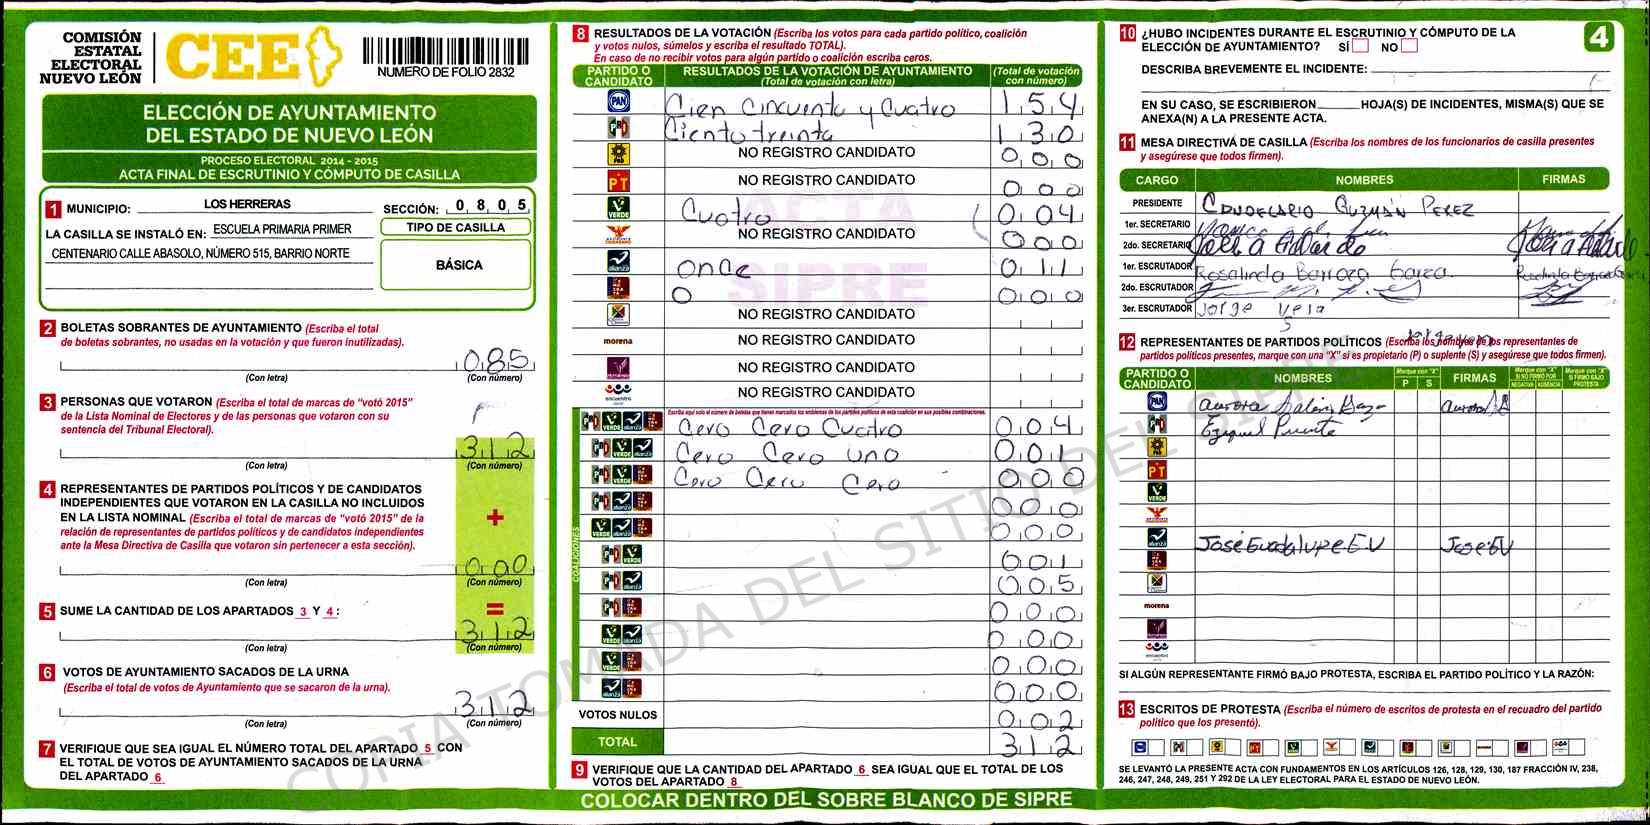 COMISIÓN
ESTATAL
ELECTORAL
NUEVO LEÓN
CEE
NUMERO DE FOLIO 2832
ELECCIÓN DE AYUNTAMIENTO
DEL ESTADO DE NUEVO LEÓN
PROCESO ELECTORAL 2014 - 2015
ACTA FINAL DE ESCRUTINIO Y CÓMPUTO DE CASILLA
1 MUNICIPIO: LOS HERRERAS SECCIÓN: 0805
LA CASILLA SE INSTALÓ EN: ESCUELA PRIMARIA PRIMER
CENTENARIO CALLE ABASOLO, NÚMERO 515, BARRIO NORTE
TIPO DE CASILLA
BÁSICA
2 BOLETAS SOBRANTES DE AYUNTAMIENTO (Escriba el total
de boletas sobrantes, no usadas en la votación y que fueron inutilizadas).
085
(Con letra) (Con número)
3 PERSONAS QUE VOTARON (Escriba el total de marcas de "votó 2015"
de la Lista Nominal de Electores y de las personas que votaron con su
sentencia del Tribunal Electoral).
312
(Con letra) (Con número)
4 REPRESENTANTES DE PARTIDOS POLÍTICOS Y DE CANDIDATOS
INDEPENDIENTES QUE VOTARON EN LA CASILLA NO INCLUIDOS
EN LA LISTA NOMINAL (Escriba el total de marcas de "votó 2015" de la
relación de representantes de partidos políticos y de candidatos independientes
ante la Mesa Directiva de Casilla que votaron sin pertenecer a esta sección).
+
000
(Con letra) (Con número)
5 SUME LA CANTIDAD DE LOS APARTADOS 3 Y 4 :
=
312
(Con letra) (Con número)
6 VOTOS DE AYUNTAMIENTO SACADOS DE LA URNA
(Escriba el total de votos de Ayuntamiento que se sacaron de la urna).
312
(Con letra) (Con número)
7 VERIFIQUE QUE SEA IGUAL EL NÚMERO TOTAL DEL APARTADO 5 CON
EL TOTAL DE VOTOS DE AYUNTAMIENTO SACADOS DE LA URNA
DEL APARTADO 6
8 RESULTADOS DE LA VOTACIÓN (Escriba los votos para cada partido político, coalición
y votos nulos, súmelos y escriba el resultado TOTAL).
En caso de no recibir votos para algún partido o coalición escriba ceros.
PARTIDO O CANDIDATO RESULTADOS DE LA VOTACIÓN DE AYUNTAMIENTO (Total de votación con letra) (Total de votación con número)
PAN Cien Cincuenta y Cuatro 154
PRI Ciento treinta 130
PRD NO REGISTRO CANDIDATO 000
PT NO REGISTRO CANDIDATO 000
VERDE Cuatro 004
NO REGISTRO CANDIDATO 000
alianza once 011
0 000
NO REGISTRO CANDIDATO
morena NO REGISTRO CANDIDATO
NO REGISTRO CANDIDATO
encuentro NO REGISTRO CANDIDATO
ACTA
SIPRE
Escriba aquí solo el número de boletas que tienen marcados los emblemas de los partidos políticos de esta coalición en sus posibles combinaciones.
COALICIONES
Cero Cero Cuatro 004
Cero Cero uno 001
Cero Cero Cero 000
000
000
001
005
000
000
000
000
VOTOS NULOS 002
TOTAL 312
9 VERIFIQUE QUE LA CANTIDAD DEL APARTADO 6 SEA IGUAL QUE EL TOTAL DE LOS
VOTOS DEL APARTADO 8
COLOCAR DENTRO DEL SOBRE BLANCO DE SIPRE
4
10 ¿HUBO INCIDENTES DURANTE EL ESCRUTINIO Y CÓMPUTO DE LA
ELECCIÓN DE AYUNTAMIENTO? SÍ NO
DESCRIBA BREVEMENTE EL INCIDENTE:
EN SU CASO, SE ESCRIBIERON HOJA(S) DE INCIDENTES, MISMA(S) QUE SE
ANEXA(N) A LA PRESENTE ACTA.
11 MESA DIRECTIVA DE CASILLA (Escriba los nombres de los funcionarios de casilla presentes
y asegúrese que todos firmen).
CARGO NOMBRES FIRMAS
PRESIDENTE CANDELARIO GUZMÁN PEREZ
1er. SECRETARIO
2do. SECRETARIO
1er. ESCRUTADOR Rosalinda Barraza Garza
2do. ESCRUTADOR
3er. ESCRUTADOR Jorge Vela
12 REPRESENTANTES DE PARTIDOS POLÍTICOS (Escriba los nombres de los representantes de
partidos políticos presentes, marque con una "X" si es propietario (P) o suplente (S) y asegúrese que todos firmen).
PARTIDO O CANDIDATO NOMBRES Marque con "X" P S FIRMAS Marque con "X" SI NO FIRMÓ POR NEGATIVA AUSENCIA Marque con "X" SI FIRMÓ BAJO PROTESTA
PAN Aurora Garza
Ezequiel Puente
PT
VERDE
alianza José Guadalupe E.V José E.V
morena
encuentro
SI ALGÚN REPRESENTANTE FIRMÓ BAJO PROTESTA, ESCRIBA EL PARTIDO POLÍTICO Y LA RAZÓN:
13 ESCRITOS DE PROTESTA (Escriba el número de escritos de protesta en el recuadro del partido
político que los presentó).
SE LEVANTÓ LA PRESENTE ACTA CON FUNDAMENTOS EN LOS ARTÍCULOS 126, 128, 129, 130, 187 FRACCIÓN IV, 238,
246, 247, 248, 249, 251 Y 292 DE LA LEY ELECTORAL PARA EL ESTADO DE NUEVO LEÓN.
COPIA TOMADA DEL SITIO DEL SIPRE